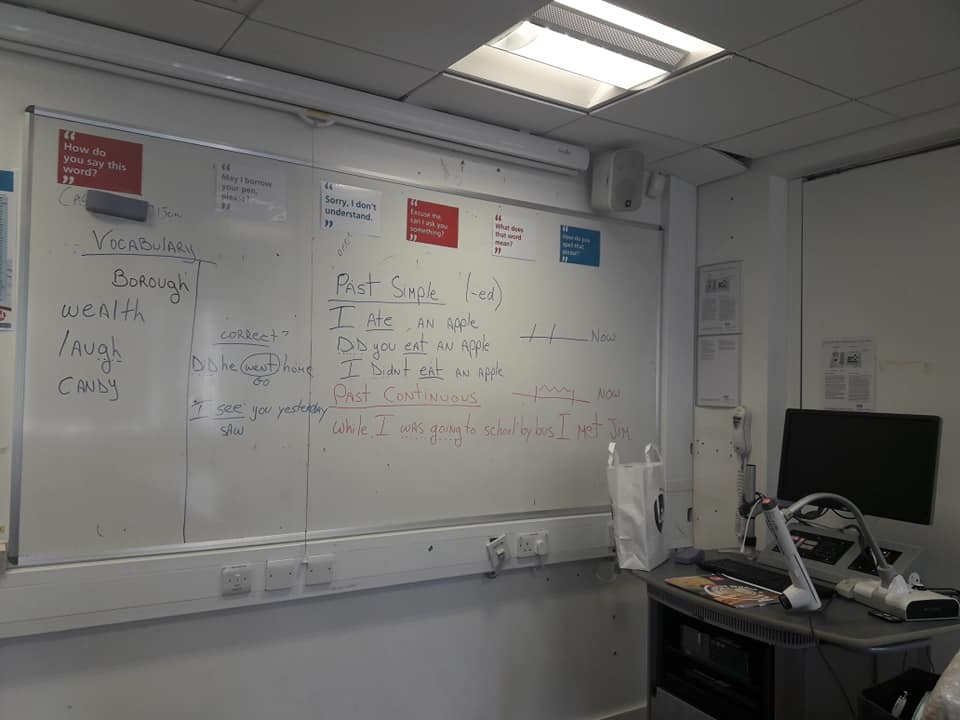 “ How do
you say this
word? ”
“ May I borrow
your pen,
please? ”
“ Sorry, I don't
understand. ”
“ Excuse me,
can I ask you
something? ”
“ What does
that word
mean? ”
“ How do you
spell that
please? ”
VOCABULARY
BOROUGH
WEALTH
LAUGH
CANDY
CORRECT?
DID he went home
GO
I see you yesterday
SAW
PAST SIMPLE (-ed)
I ATE AN APPLE
NOW
DID you eat AN APPLE
I Didn't eat AN APPLE
PAST CONTINUOUS
NOW
While I WAS going to school by bus I MET JIM